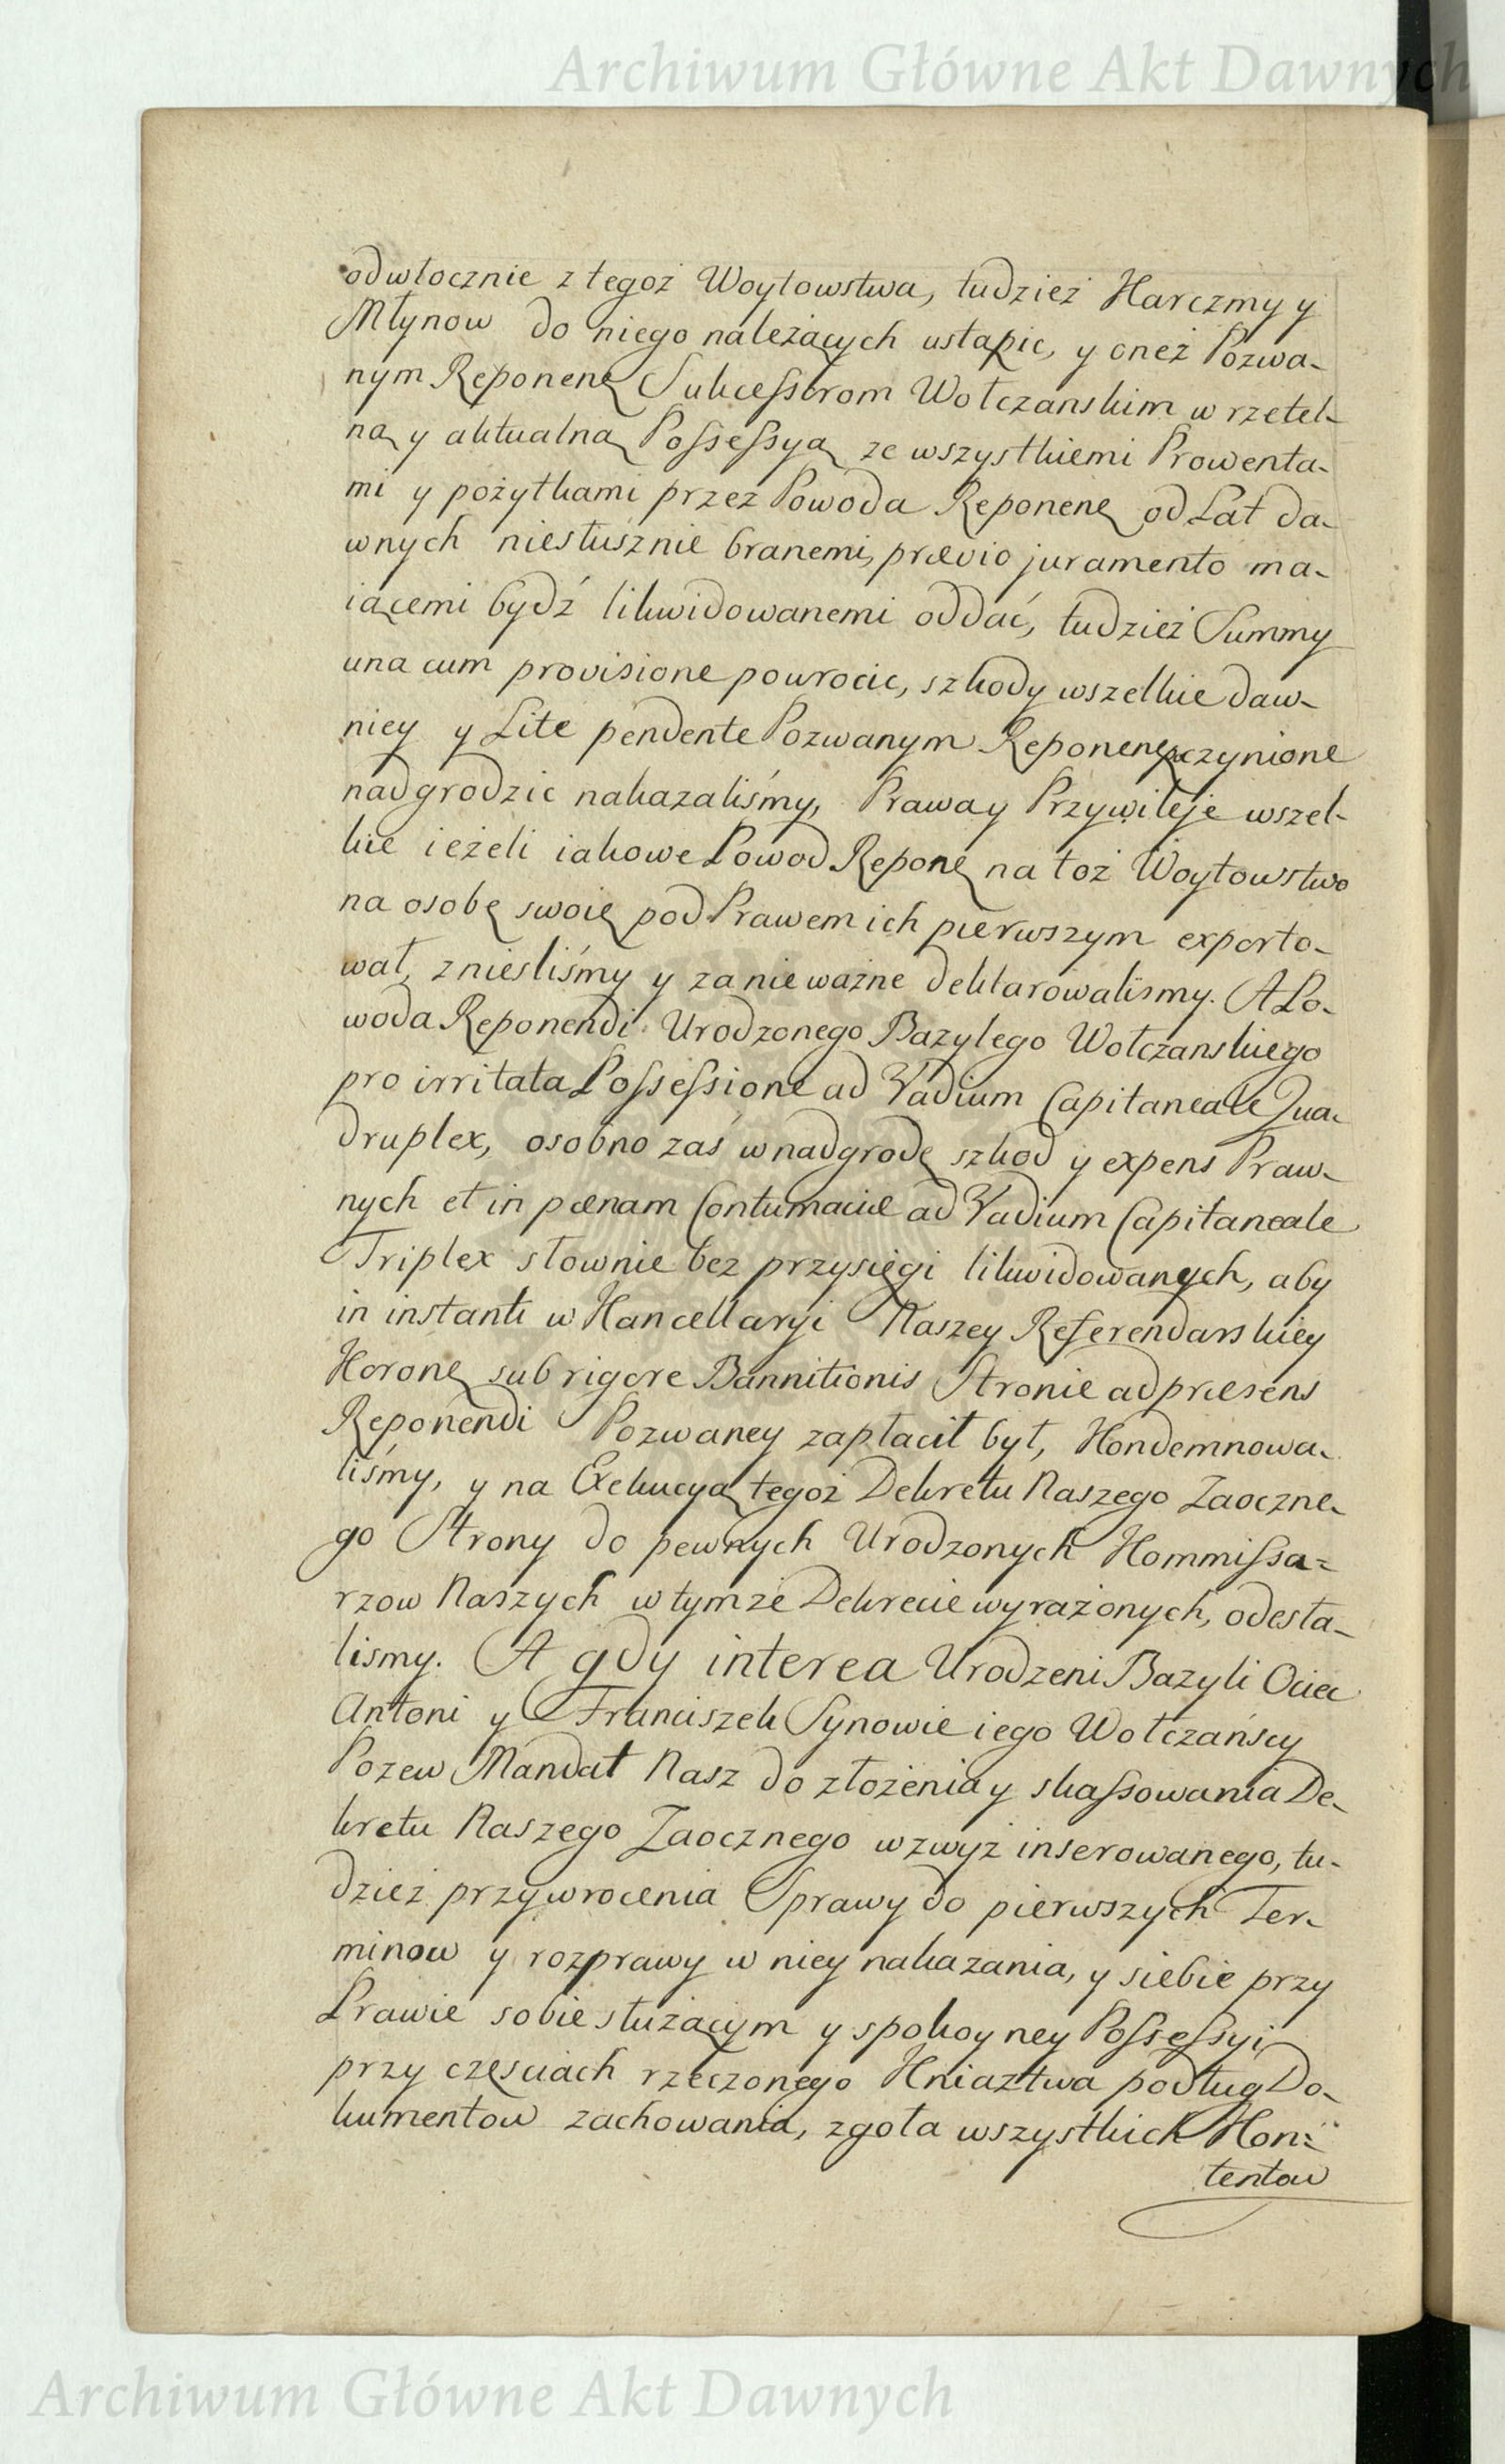 Archiwum Główne Akt Dawnych
odwłocznie z tegoż Woytowstwa, tudzież Karczmy y
Młynow do niego należących ustąpic, y oneż Pozwa-
nym Reponenę Sukcessorom Wołczanskim w rzetel-
ną y aktualną Possessyą ze wszystkiemi Prowenta-
mi y pożytkami przez Powoda Reponenę od Lat da-
wnych niesłusznie branemi, prævio juramento ma-
iącemi bydź likwidowanemi oddać, tudzież Summy
una cum provisione powrocic, szkody wszelkie daw-
niey y Lite pendente Pozwanym Reponenę uczynione
nadgrodzic nakazaliśmy, Prawa y Przywileje wszel-
kie ieżeli iakowe Powod Reponę na toż Woytowstwo
na osobę swoię pod Prawem ich pierwszym exporto-
wał, znieśliśmy y za nie ważne deklarowalismy. A Po-
woda Reponendi Urodzonego Bazylego Wołczanskiego
pro irritata Possessione ad Vadium Capitaneale Qua-
druplex, osobno zaś w nadgrodę szkod y expens Praw-
nych et in pœnam Contumaciæ ad Vadium Capitaneale
Triplex słownie bez przysięgi likwidowanych, aby
in instanti w Kancellaryi Naszey Referendarskiey
Koronę sub rigore Bannitionis Stronie ad præsens
Reponendi Pozwaney zapłacił był, Kondemnowa-
liśmy, y na Exekucyą tegoż Dekretu Naszego Zaoczne-
go Strony do pewnych Urodzonych Kommissa=
rzow Naszych w tymże Dekrecie wyrażonych, odesła-
lismy. A gdy interea Urodzeni Bazyli Ociec
Antoni y Franciszek Synowie iego Wołczańscy
Pozew Mandat Nasz do złożenia y skassowania De-
kretu Naszego Zaocznego wzwyż inserowanego, tu-
dzież przywrocenia Sprawy do pierwszych Ter-
minow y rozprawy w niey nakazania, y siebie przy
Prawie sobie służącym y spokoyney Possessyi
przy częsciach rzeczonego Kniaztwa podług Do-
kumentow zachowania, zgoła wszystkich Kon=
tentow
Archiwum Główne Akt Dawnych